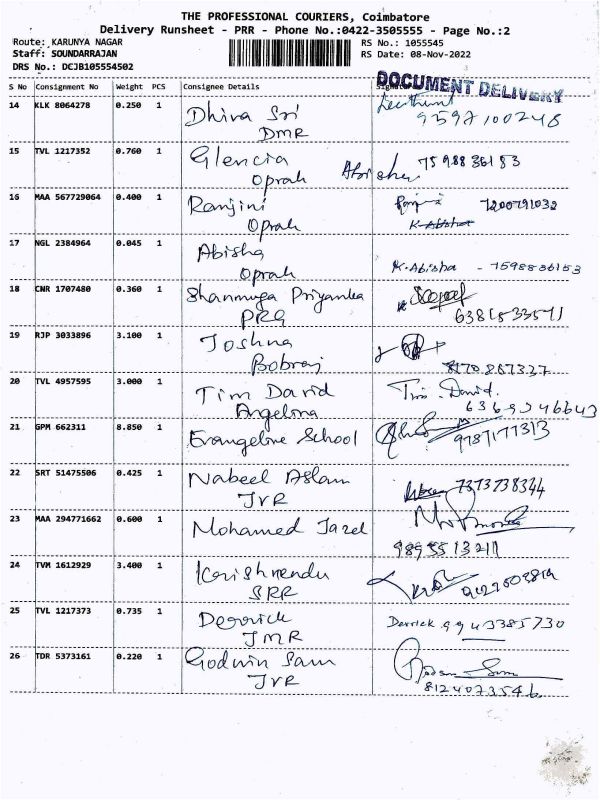 THE PROFESSIONAL COURIERS, Coimbatore
Delivery Runsheet - PRR - Phone No.:0422-3505555 - Page No.:2
Route: KARUNYA NAGAR RS No.: 1055545
Staff: SOUNDARRAJAN RS Date: 08-Nov-2022
DRS No.: DCJB105554502
DOCUMENT DELIVERY
S No Consignment No Weight PCS Consignee Details
14 KLK 8064278 0.250 1 Dhiva Sri
DMR 9597100248
15 TVL 1217352 0.760 1 Glencia Abisha 7598836153
Oprah
16 MAA 567729064 0.400 1 Ranjini 7200791032
Oprah K. Abisha
17 NGL 2384964 0.045 1 Abisha
Oprah K. Abisha - 7598836153
18 CNR 1707480 0.360 1 Shanmuga Priyanka
PRG 6381533571
19 RJP 3033896 3.100 1 Joshna
Bobraj 8170867337
20 TVL 4957595 3.000 1 Tim David Tim. David.
Angelina 6369246643
21 GPM 662311 8.850 1 Evangeline School 9787177313
22 SRT 51475506 0.425 1 Nabeel Aslam 7373738344
JVR
23 MAA 294771662 0.600 1 Mohamed Jazel
9895513211
24 TVM 1612929 3.400 1 Krishnendu
SRR
25 TVL 1217373 0.735 1 Derrick Derrick 9943385730
JMR
26 TDR 5373161 0.220 1 Godwin Sam
JVR 8124073546